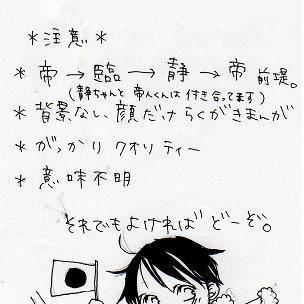 *注意*
*帝→臨→静→帝 前堤。
(静ちゃんと帝人くんは付き合ってます)
*背景ない顔だけらくがきまんが
*がっかりクオリティー
*意味不明
それでもよければどーぞ。